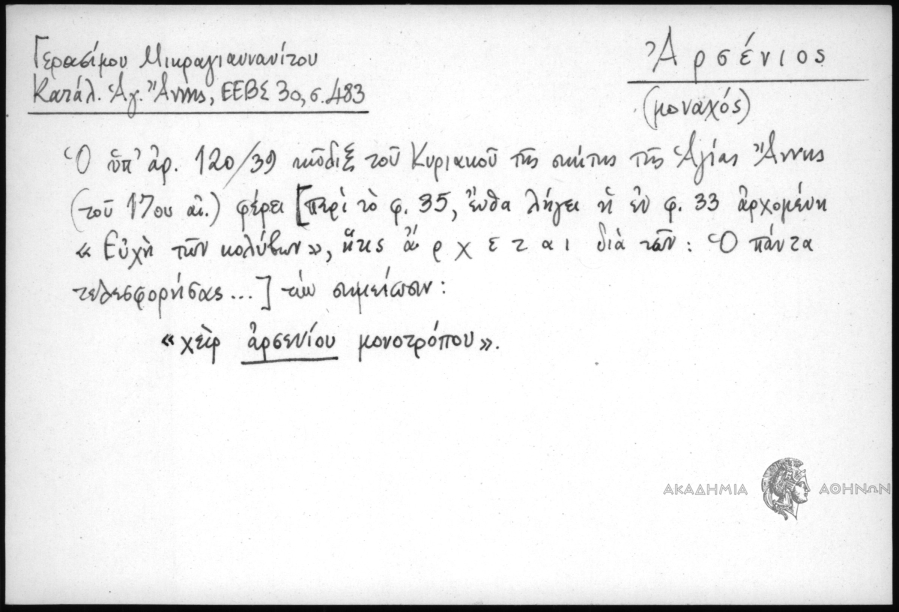 Γερασίμου Μικραγιαννανίτου
Κατάλ. Ἁγ. Ἄννης, ΕΕΒΣ 30, σ. 483
Ἀρσένιος
(μοναχός)
Ὁ ὑπ' ἀρ. 120/39 κῶδιξ τοῦ Κυριακοῦ τῆς σκήτης τῆς Ἁγίας Ἄννης
(τοῦ 17ου αἰ.) φέρει [περὶ τὸ φ. 35, ἔνθα λήγει ἡ ἐν φ. 33 ἀρχομένη
« Εὐχὴ τῶν κολύβων», ἥτις ἄρχεται διὰ τῶν: Ὁ πάντα
τελεσφορήσας...] τὴν σημείωσιν:
«χεὶρ ἀρσενίου μονοτρόπου».
ΑΚΑΔΗΜΙΑ ΑΘΗΝΩΝ